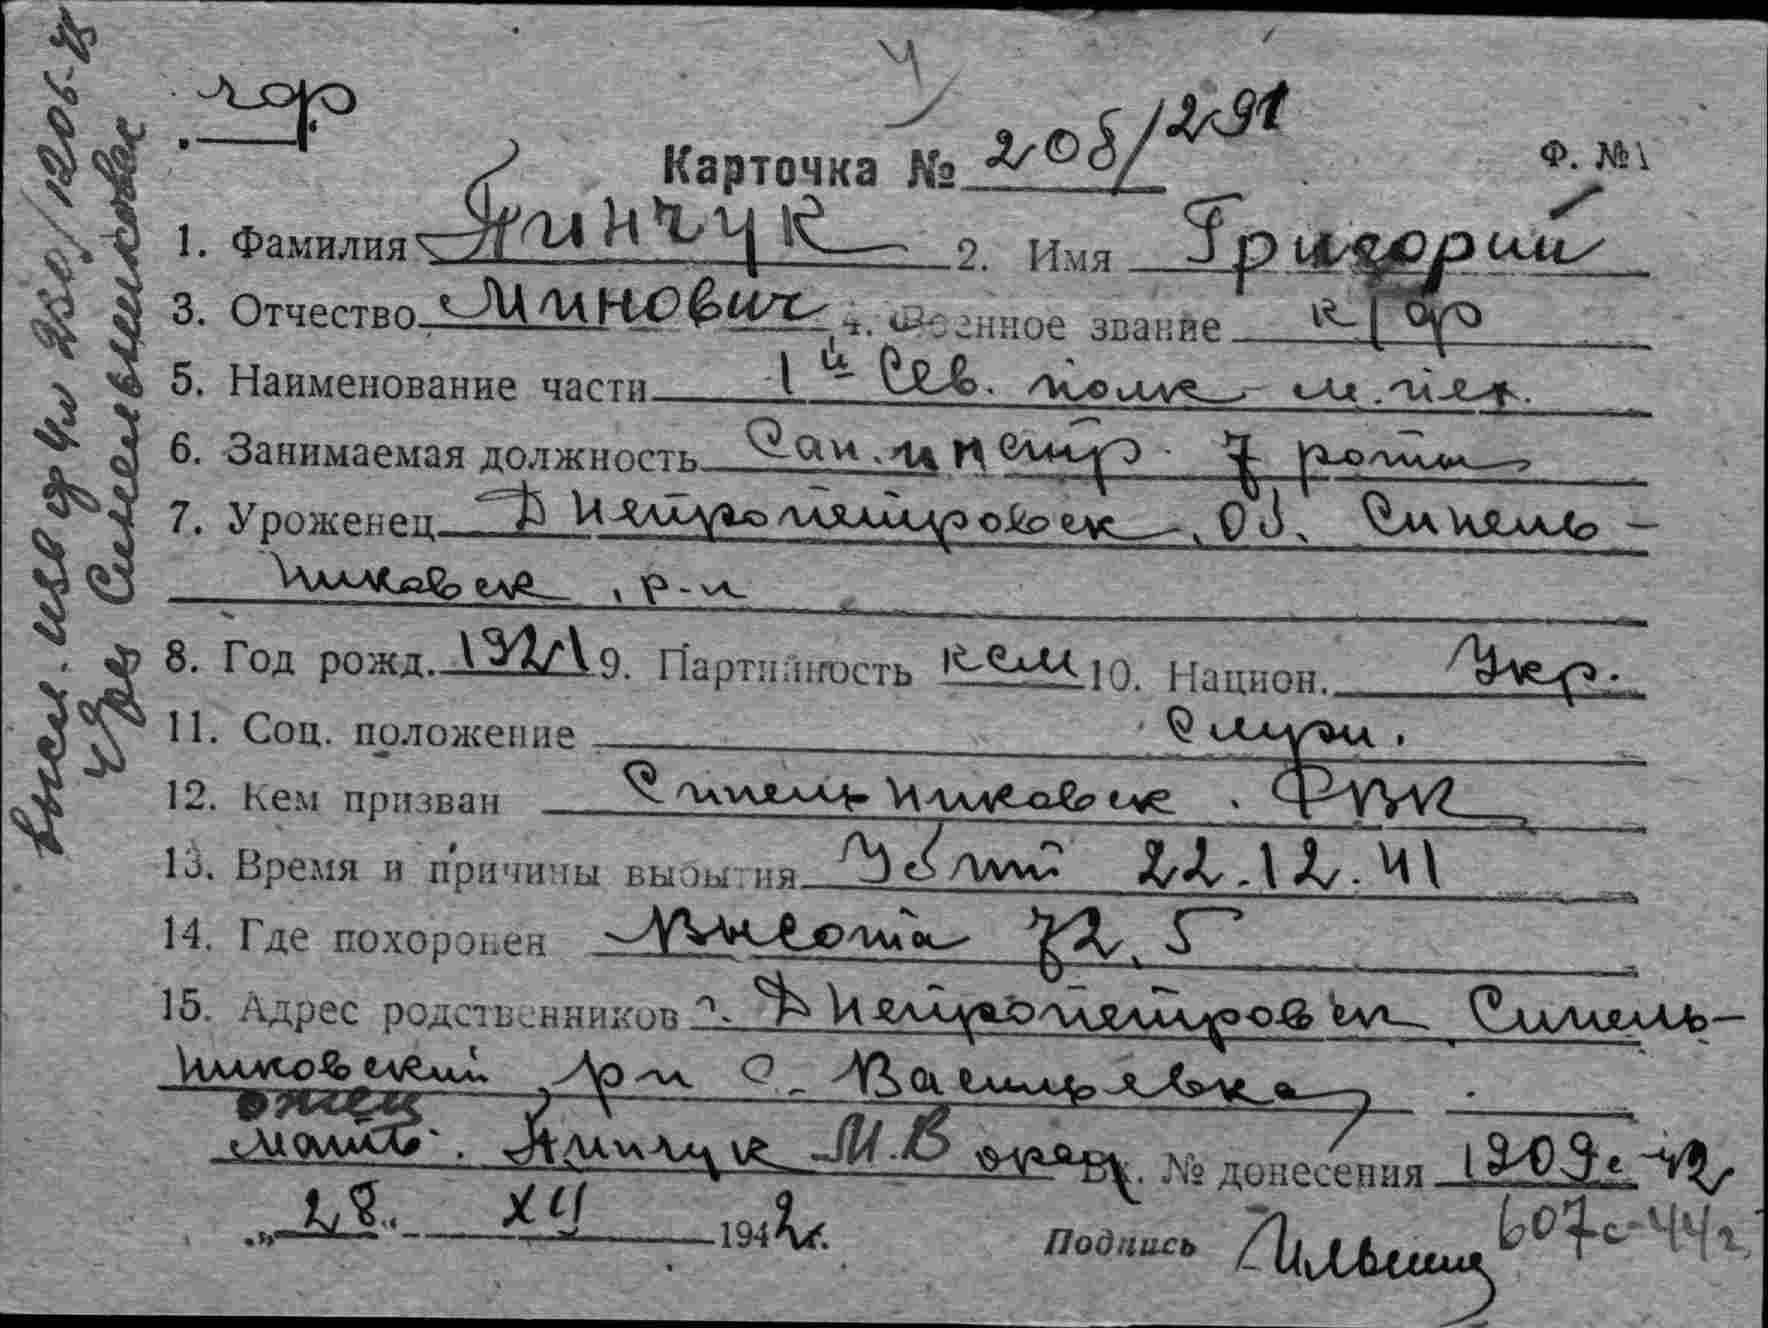 чф
Карточка № 208/291
Ф. №1
1. Фамилия Пинчук 2. Имя Григорий
3. Отчество Минович 4. Военное звание к/ф
5. Наименование части 1й Сев. полк м. пех.
6. Занимаемая должность Сан. инстр. 7 роты
7. Уроженец Днепропетровск. Об. Синель-
никовск. р-н
8. Год рожд. 1921 9. Партийность ксм 10. Национ. Укр.
11. Соц. положение Служ.
12. Кем призван Синельниковск. РВК
13. Время и причины выбытия Убит 22.12.41
14. Где похоронен Высота 72,5
15. Адрес родственников г. Днепропетровск Синель-
никовский рн с. Васильевка
отец
мать. Пинчук М.В Вх. № донесения 1909с-42
607с-44г.
„28" XII 1942г. Подпись Ильина
высл. изв ф 4м 250/1206-
Синельниковск